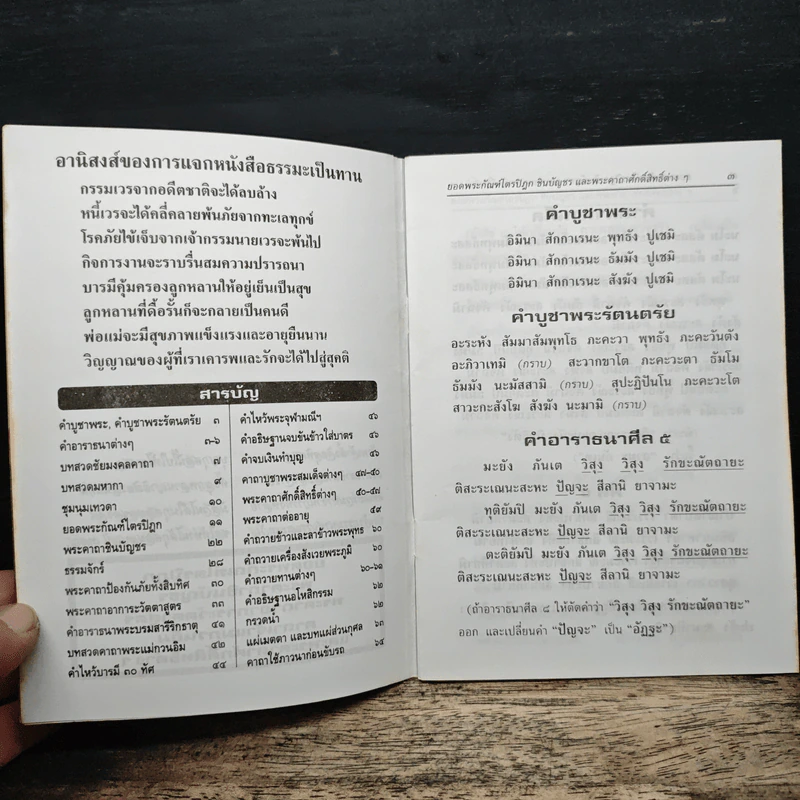 อานิสงส์ของการแจกหนังสือธรรมะเป็นทาน
กรรมเวรจากอดีตชาติจะได้ลบล้าง
หนี้เวรจะได้คลี่คลายพ้นภัยจากทะเลทุกข์
โรคภัยไข้เจ็บจากเจ้ากรรมนายเวรจะพ้นไป
กิจการงานจะราบรื่นสมความปรารถนา
บารมีคุ้มครองลูกหลานให้อยู่เย็นเป็นสุข
ลูกหลานที่ดื้อรั้นก็จะกลายเป็นคนดี
พ่อแม่จะมีสุขภาพแข็งแรงและอายุยืนนาน
วิญญาณของผู้ที่เราเคารพและรักจะได้ไปสู่สุคติ
สารบัญ
คำบูชาพระ, คำบูชาพระรัตนตรัย ๓
คำอาราธนาต่างๆ ๓-๖
บทสวดชัยมงคลคาถา ๗
บทสวดมหากา ๙
ชุมนุมเทวดา ๑๐
ยอดพระกัณฑ์ไตรปิฎก ๑๑
พระคาถาชินบัญชร ๒๒
ธรรมจักร์ ๒๘
พระคาถาป้องกันภัยทั้งสิบทิศ ๓๐
พระคาถาอาการะวัตตาสูตร ๓๓
คำอาราธนาพระบรมสารีริกธาตุ ๔๑
บทสวดคาถาพระแม่กวนอิม ๔๒
คำไหว้บารมี ๓๐ ทัศ ๔๔
คำไหว้พระจุฬามณีฯ ๔๖
คำอธิษฐานจบขันข้าวใส่บาตร ๔๖
คำจบเงินทำบุญ ๔๖
คาถาบูชาพระสมเด็จต่างๆ ๔๗-๕๐
พระคาถาศักดิ์สิทธิ์ต่างๆ ๕๐-๕๗
พระคาถาต่ออายุ ๕๙
คำถวายข้าวและลาข้าวพระพุทธ ๖๐
คำถวายเครื่องสังเวยพระภูมิ ๖๐
คำถวายทานต่างๆ ๖๐-๖๑
คำอธิษฐานอโหสิกรรม ๖๒
กรวดน้ำ ๖๒
แผ่เมตตา และบทแผ่ส่วนกุศล ๖๓
คาถาใช้ภาวนาก่อนขับรถ ๖๔
ยอดพระกัณฑ์ไตรปิฎก ชินบัญชร และพระคาถาศักดิ์สิทธิ์ต่าง ๆ ๓
คำบูชาพระ
อิมินา สักกาเรนะ พุทธัง ปูเชมิ
อิมินา สักกาเรนะ ธัมมัง ปูเชมิ
อิมินา สักกาเรนะ สังฆัง ปูเชมิ
คำบูชาพระรัตนตรัย
อะระหัง สัมมาสัมพุทโธ ภะคะวา พุทธัง ภะคะวันตัง
อะภิวาเทมิ (กราบ) สะวากขาโต ภะคะวะตา ธัมโม
ธัมมัง นะมัสสามิ (กราบ) สุปะฏิปันโน ภะคะวะโต
สาวะกะสังโฆ สังฆัง นะมามิ (กราบ)
คำอาราธนาศีล ๕
มะยัง ภันเต วิสุง วิสุง รักขะณัตถายะ
ติสะระเณนะสะหะ ปัญจะ สีลานิ ยาจามะ
ทุติยัมปิ มะยัง ภันเต วิสุง วิสุง รักขะณัตถายะ
ติสะระเณนะสะหะ ปัญจะ สีลานิ ยาจามะ
ตะติยัมปิ มะยัง ภันเต วิสุง วิสุง รักขะณัตถายะ
ติสะระเณนะสะหะ ปัญจะ สีลานิ ยาจามะ
(ถ้าอาราธนาศีล ๘ ให้ตัดคำว่า "วิสุง วิสุง รักขะณัตถายะ"
ออก และเปลี่ยนคำ "ปัญจะ" เป็น "อัฏฐะ")